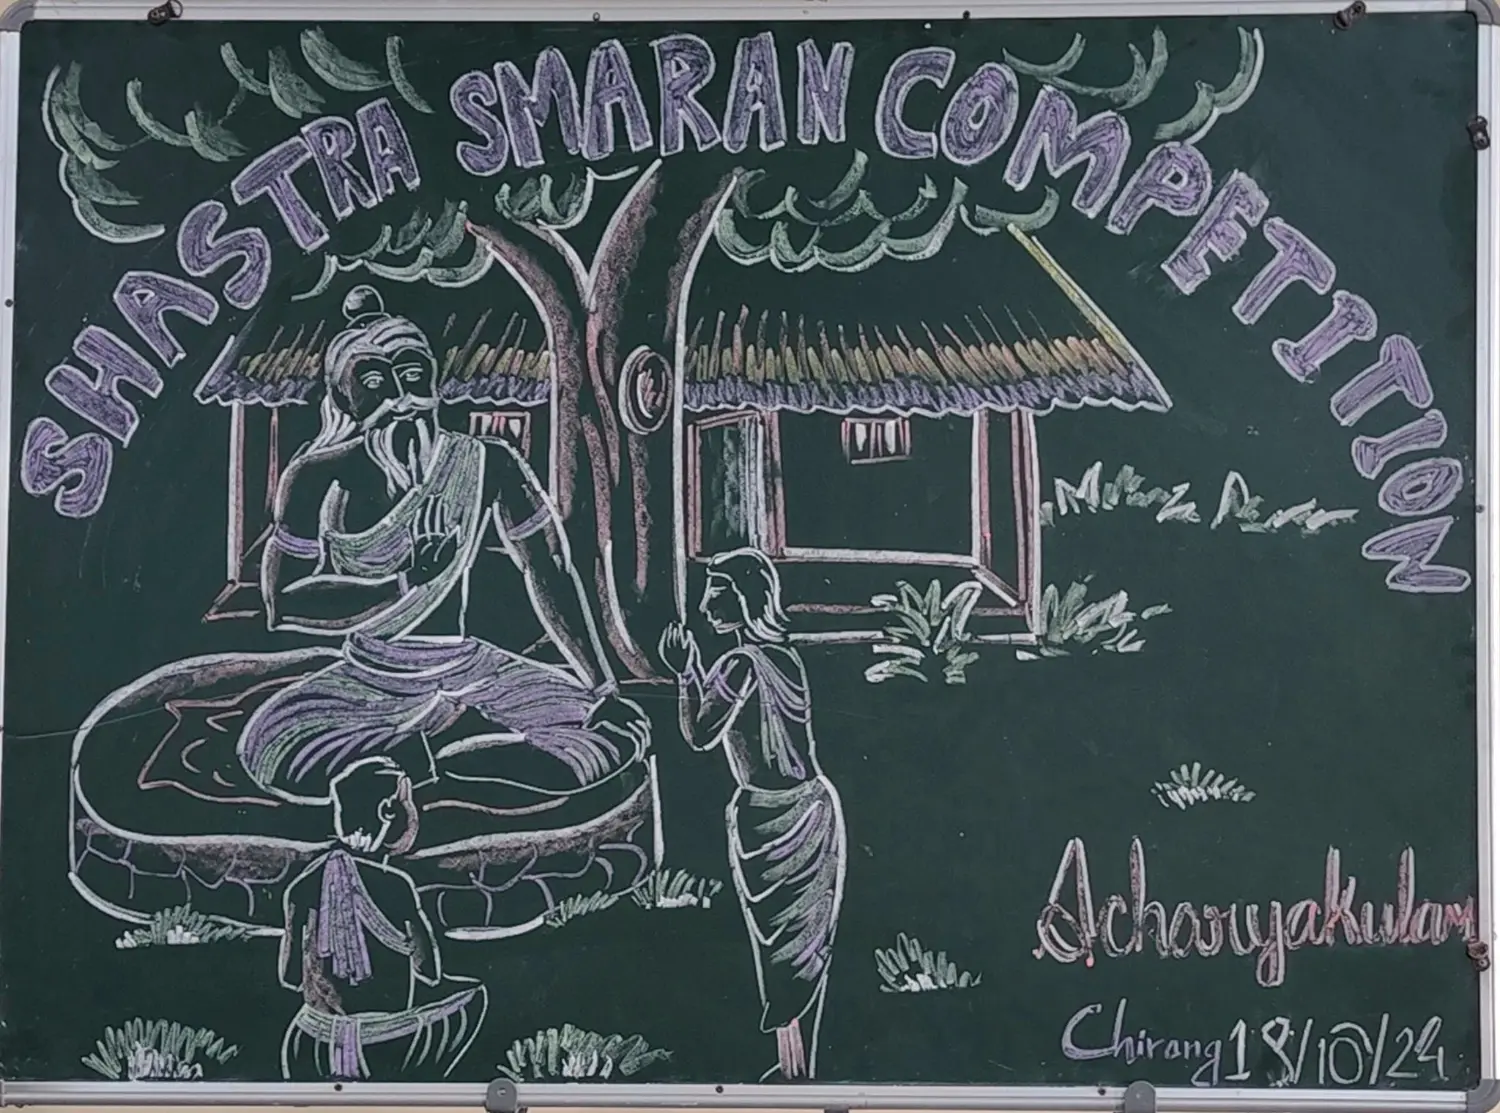 SHASTRA SMARAN COMPETITION
Acharyakulam
Chirang 18/10/24